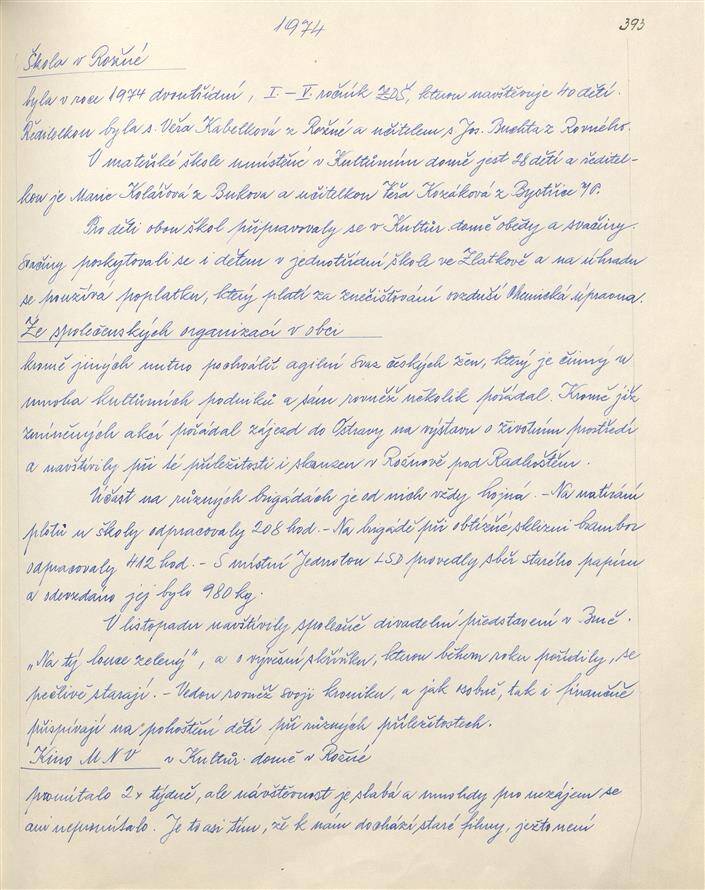 1974
393
Škola v Rožné
byla v roce 1974 dvoutřídní, I.–V. ročník ZDŠ, kterou navštěvuje 40 dětí.
Ředitelkou byla s. Věra Kabelková z Rožné a učitelem s. Jos. Buchta z Rovného.
V mateřské škole umístěné v Kulturním domě jest 28 dětí a ředitel-
kou je Marie Kolářová z Bukova a učitelkou Věra Kozáková z Bystřice n/P.
Pro děti obou škol připravovaly se v Kultur. domě obědy a svačiny.
Svačiny poskytovali se i dětem v jednotřídní škole ve Zlatkově a na úhradu
se používá poplatku, který platí za znečištování ovzduší Chemická úpravna.
Ze společenských organizací v obci
kromě jiných nutno pochválit agilní Svaz českých žen, který je činný u
mnoha kulturních podniků a sám rovněž několik pořádal. Kromě již
zmíněných akcí pořádal zájezd do Ostravy na výstavu o životním prostředí
a navštívily při té příležitosti i skanzen v Rožnově pod Radhoštěm.
Účast na různých brigádách je od nich vždy hojná. – Na natírání
plotů u školy odpracovaly 208 hod. – Na brigádě při obtížné sklizni brambor
odpracovaly 412 hod. – S místní Jednotou LSD provedly sběr starého papíru
a odevzdáno jej bylo 980 kg.
V listopadu navštívily společně divadelní představení v Brně.
„Na tý louce zelený", a o vývěsní skříňku, kterou během roku pořídily, se
pečlivě starají. – Vedou rovněž svoji kroniku, a jak osobně, tak i finančně
přispívají na pohoštění dětí při různých příležitostech.
Kino MNV v Kultur. domě v Rožné
promítalo 2x týdně, ale návštěvnost je slabá a mnohdy pro nezájem se
ani nepromítalo. Je to asi tím, že k nám dochází staré filmy, ježto není